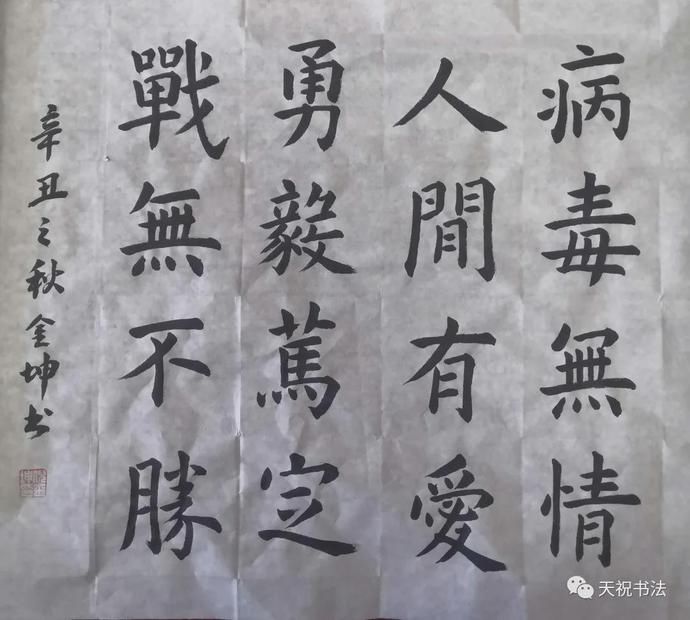 病毒無情
人間有愛
勇毅篤定
戰無不勝
辛丑之秋金坤书
天祝书法